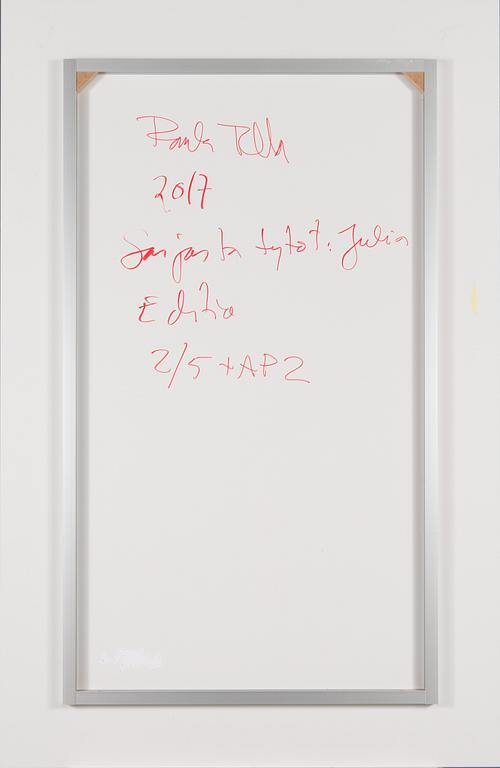 Paula Tella
2017
Sarjasta tytöt: Julia
Editio
2/5 + AP 2